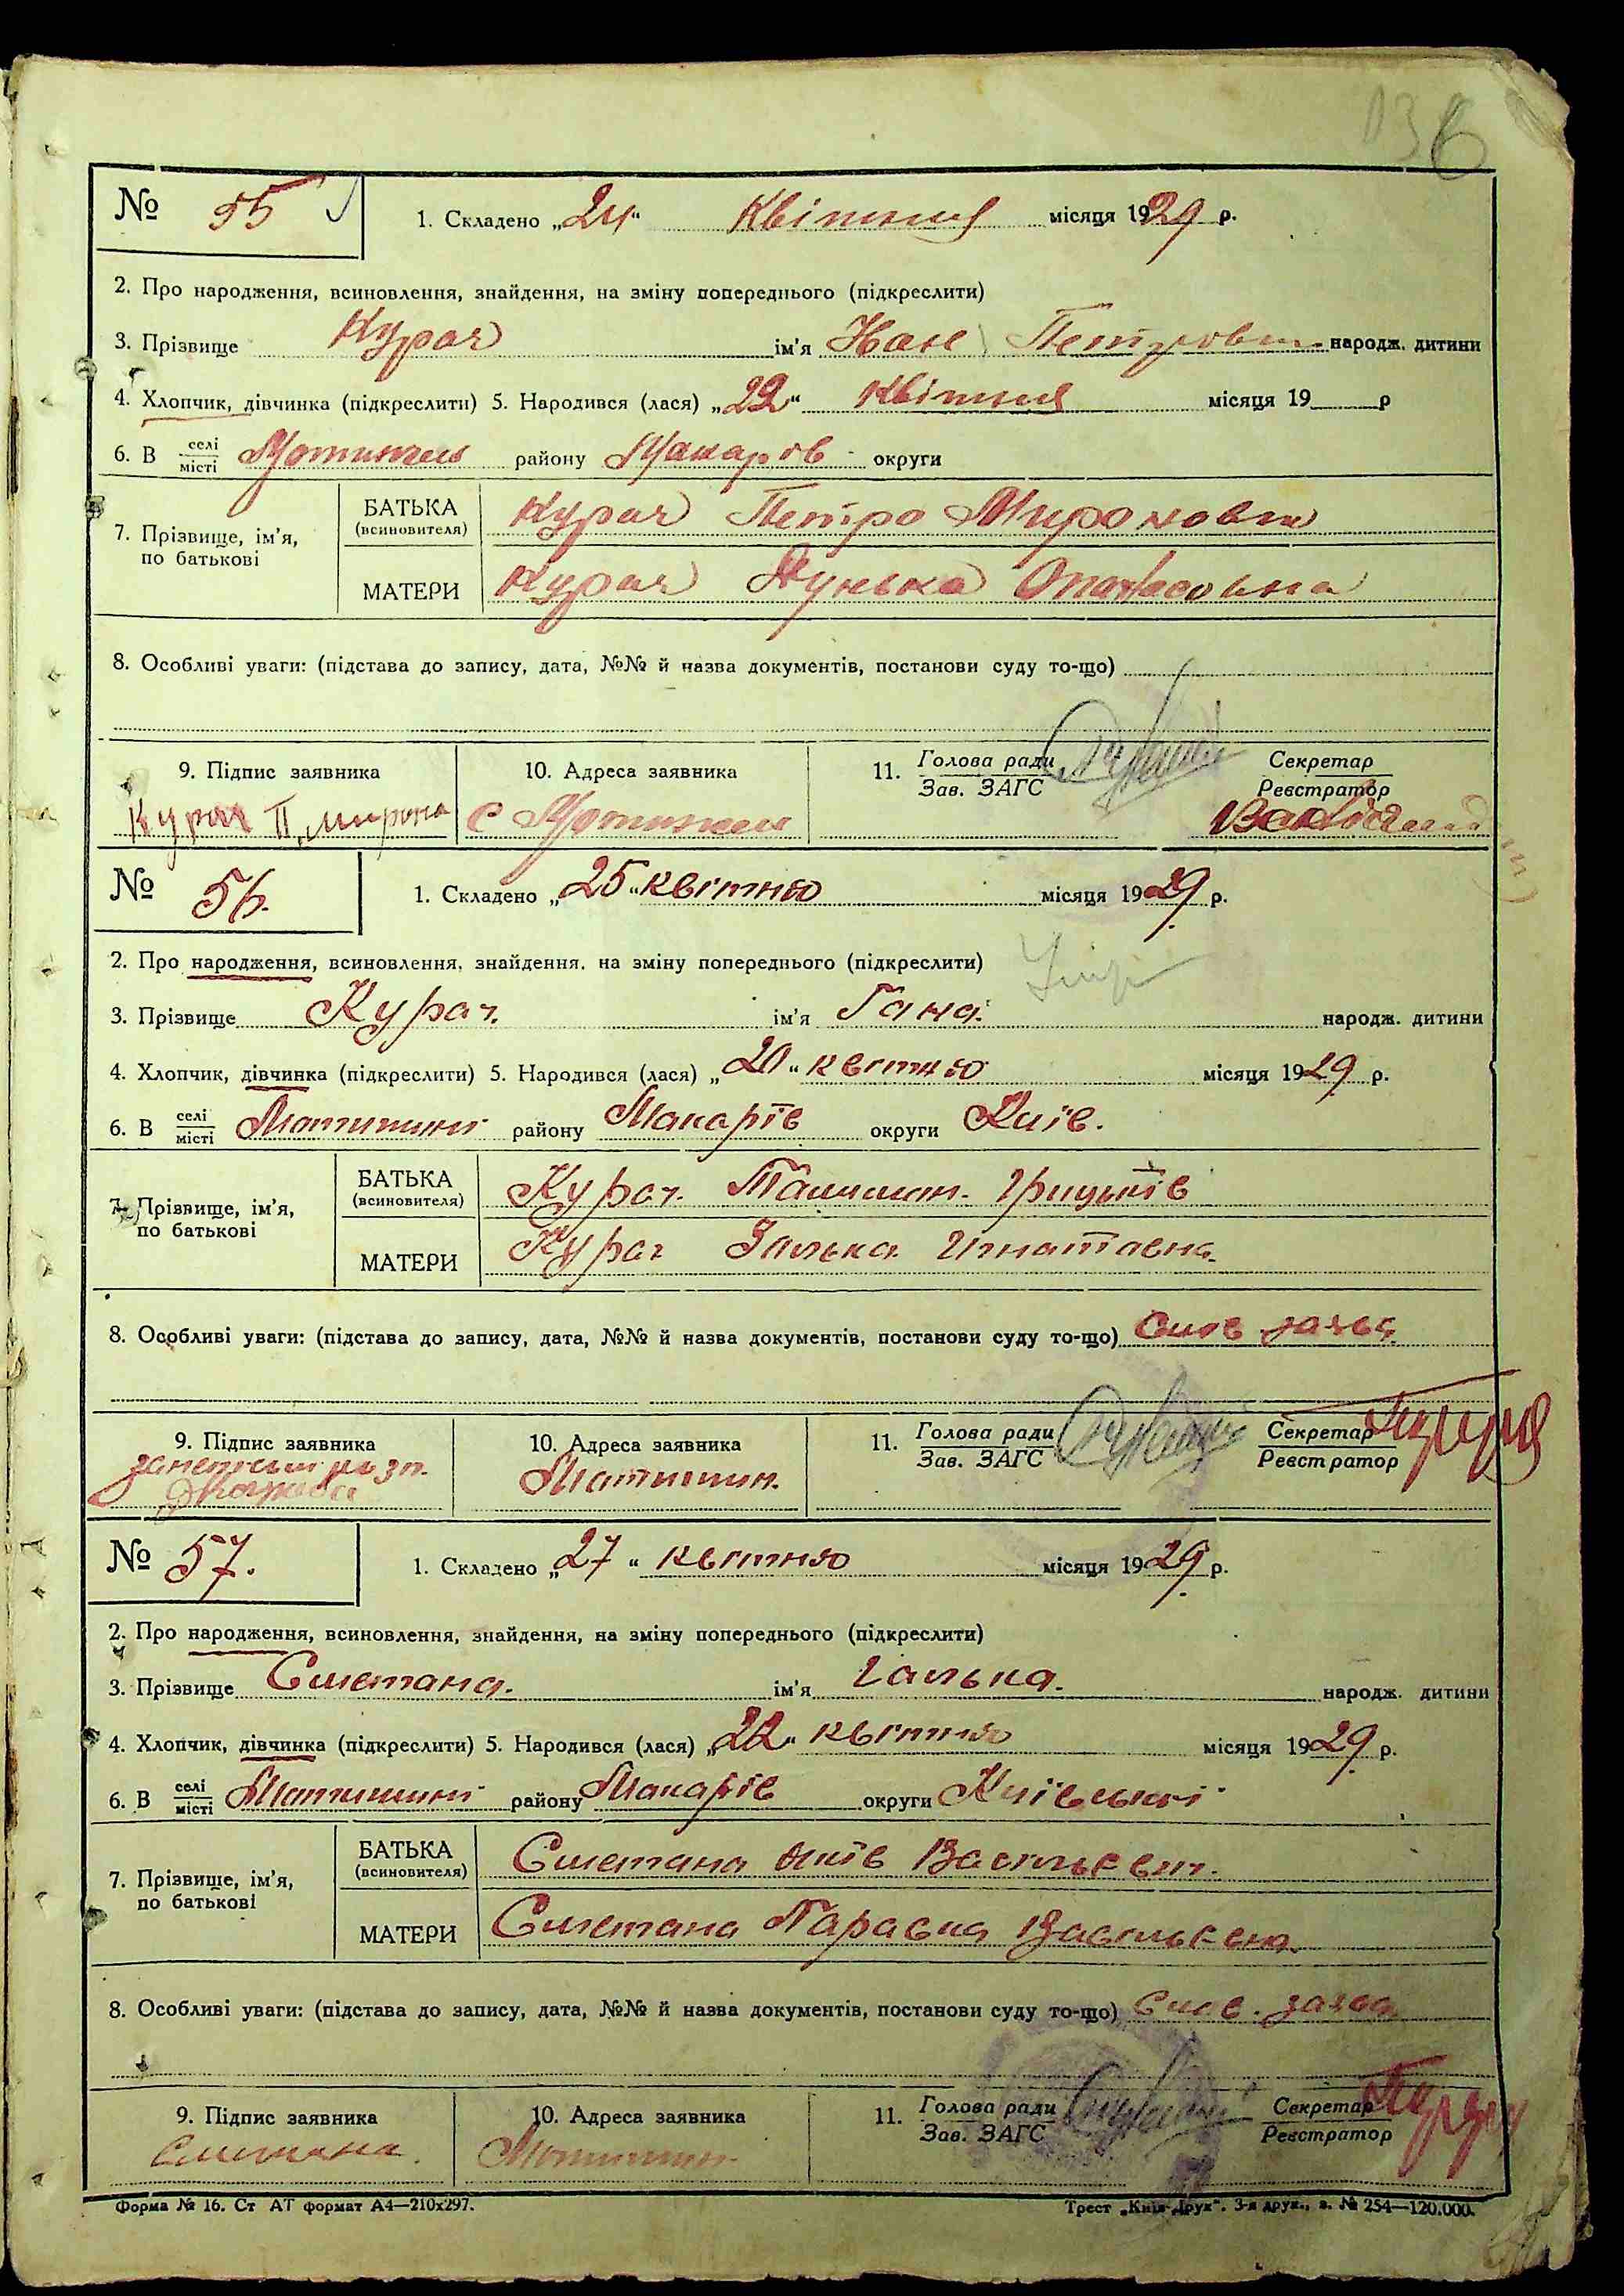 136
№ 55 1. Складено „24“ Квітня місяця 1929 р.
2. Про народження, всиновлення, знайдення, на зміну попереднього (підкреслити)
3. Прізвище Курач ім'я Петрович народж. дитини
4. Хлопчик, дівчинка (підкреслити) 5. Народився (лася) „22“ Квітня місяця 19 р
6. В селі місті Мотижин району Макаров округи
7. Прізвище, ім'я, по батькові
БАТЬКА (всиновителя) Курач Петро Миронович
МАТЕРИ Курач Дунька Опанасовна
8. Особливі уваги: (підстава до запису, дата, №№ й назва документів, постанови суду то-що)
9. Підпис заявника 10. Адреса заявника 11. Голова ради Зав. ЗАГС Секретар Реєстратор
Курач П. Мирона с Мотижин
№ 56. 1. Складено „25“ квітня місяця 1929 р.
2. Про народження, всиновлення, знайдення, на зміну попереднього (підкреслити)
3. Прізвище Курач. ім'я Гана. народж. дитини
4. Хлопчик, дівчинка (підкреслити) 5. Народився (лася) „20“ квітня місяця 1929 р.
6. В селі місті Мотижині району Макарів округи Київ.
7. Прізвище, ім'я, по батькові
БАТЬКА (всиновителя) Курач. Грицьків
МАТЕРИ Курач Галька Игнатавна.
8. Особливі уваги: (підстава до запису, дата, №№ й назва документів, постанови суду то-що) Слов заява.
9. Підпис заявника 10. Адреса заявника 11. Голова ради Зав. ЗАГС Секретар Реєстратор
Мотижин.
№ 57. 1. Складено „27“ квітня місяця 1929 р.
2. Про народження, всиновлення, знайдення, на зміну попереднього (підкреслити)
3. Прізвище Сметана. ім'я Галька. народж. дитини
4. Хлопчик, дівчинка (підкреслити) 5. Народився (лася) „22“ квітня місяця 1929 р.
6. В селі місті Мотижині району Макарів округи Київської
7. Прізвище, ім'я, по батькові
БАТЬКА (всиновителя) Сметана Яків Васильевич.
МАТЕРИ Сметана Параска Васильевна.
8. Особливі уваги: (підстава до запису, дата, №№ й назва документів, постанови суду то-що) Слов. заява
9. Підпис заявника 10. Адреса заявника 11. Голова ради Зав. ЗАГС Секретар Реєстратор
Сметана. Мотижин.
Форма № 16. Ст АТ формат А4—210х297. Трест „Київ-Друк“. 3-я друк., з. № 254—120.000.